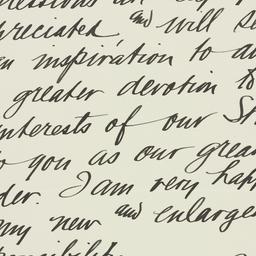 preciated and will se
an inspiration to
greater devotion to
interests of our St
to you as our great
der. I am very happ
my new and enlarge